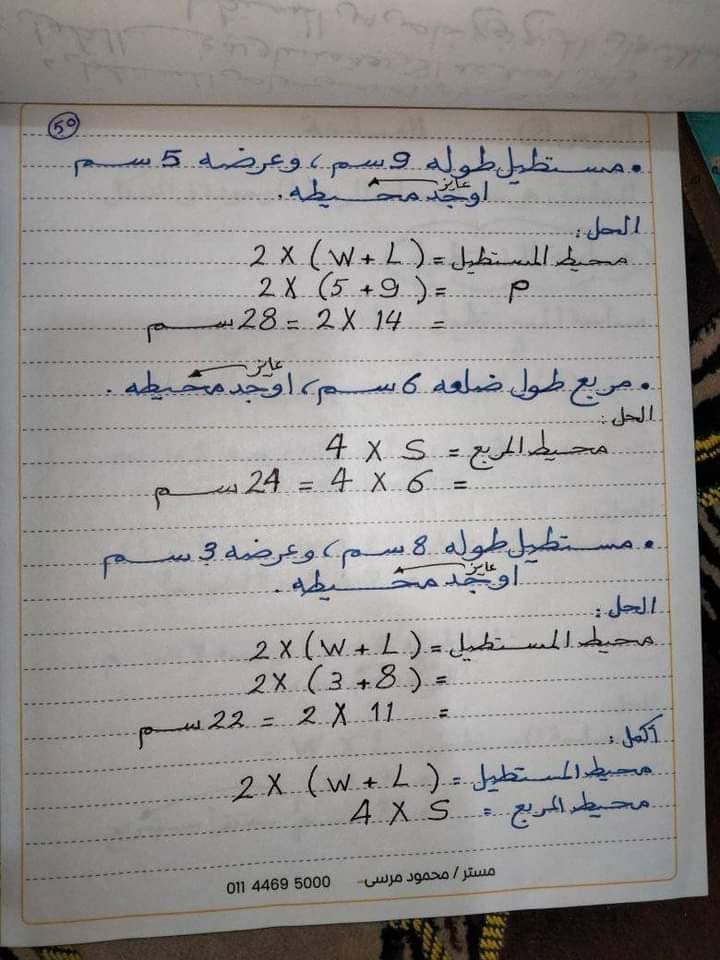 50
• مستطيل طوله 9 سم ، وعرضه 5 سم
عايز
اوجد محيطه .
الحل :
محيط المستطيل = ( W + L ) × 2
م = ( 5 + 9 ) × 2
= 14 × 2 = 28 سم
عايز
• مربع طول ضلعه 6 سم ، اوجد محيطه .
الحل :
محيط المربع = S × 4
= 6 × 4 = 24 سم
• مستطيل طوله 8 سم ، وعرضه 3 سم
عايز
اوجد محيطه .
الحل :
محيط المستطيل = ( W + L ) × 2
= ( 3 + 8 ) × 2
= 11 × 2 = 22 سم
أكمل :
محيط المستطيل = ( W + L ) × 2
محيط المربع = S × 4
مستر / محمود مرسى- 011 4469 5000